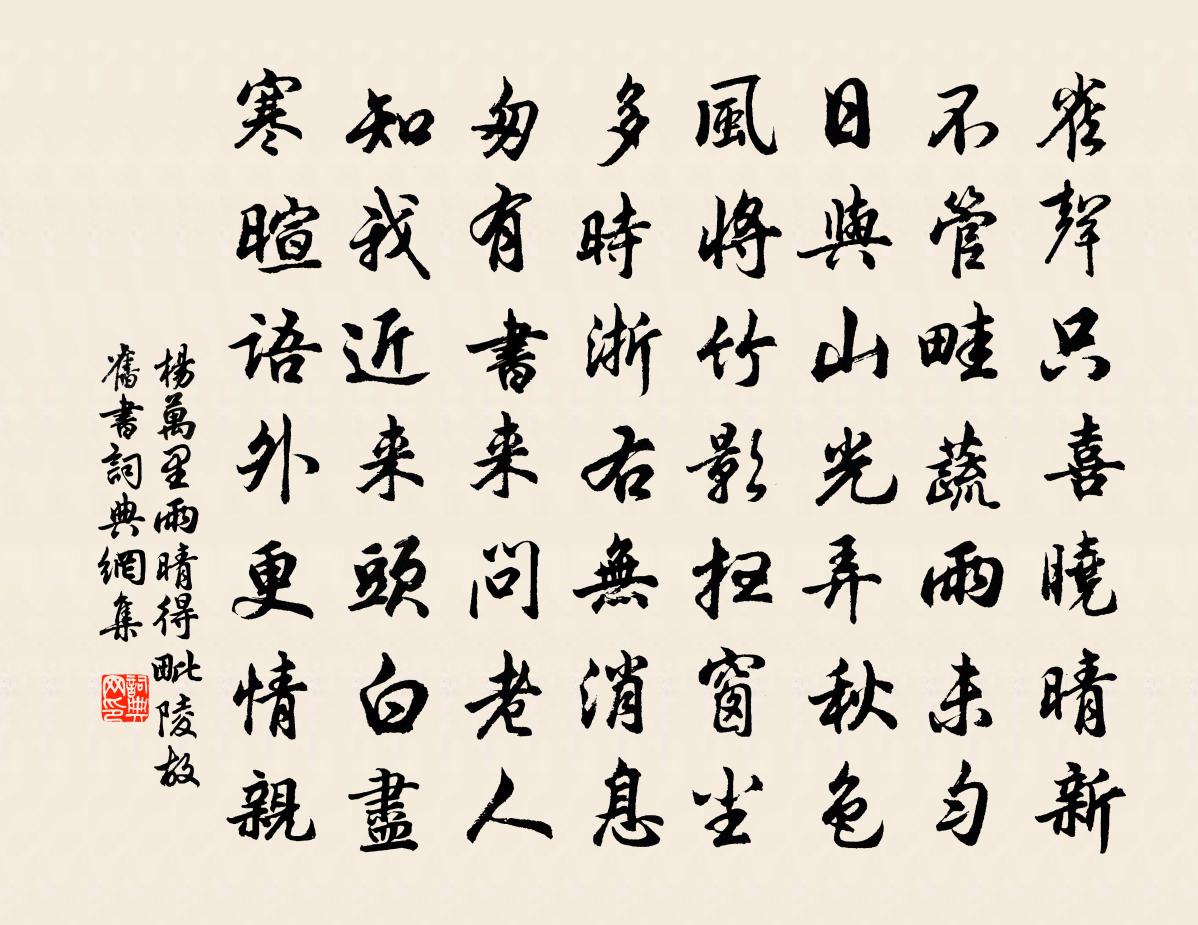 雀聲只喜曉晴新
不管畦蔬雨未匀
日與山光弄秋色
風將竹影扫窗尘
多時浙右無消息
匆有書来問老人
知我近来頭白盡
寒暄語外更情親
楊萬里雨晴得毗陵故
舊書詞典網集
詞典
网印